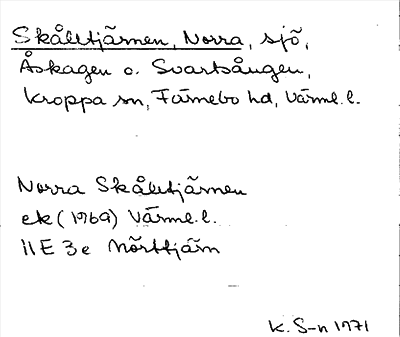 Skåltjärnen, Norra, sjö,
Åskagen o. Svartsången,
Kroppa sn, Färnebo hd, Värml. l.
Norra Skåltjärnen
ek (1969) Värml. l.
11E 3e Nörttjärn
K. S-n 1971